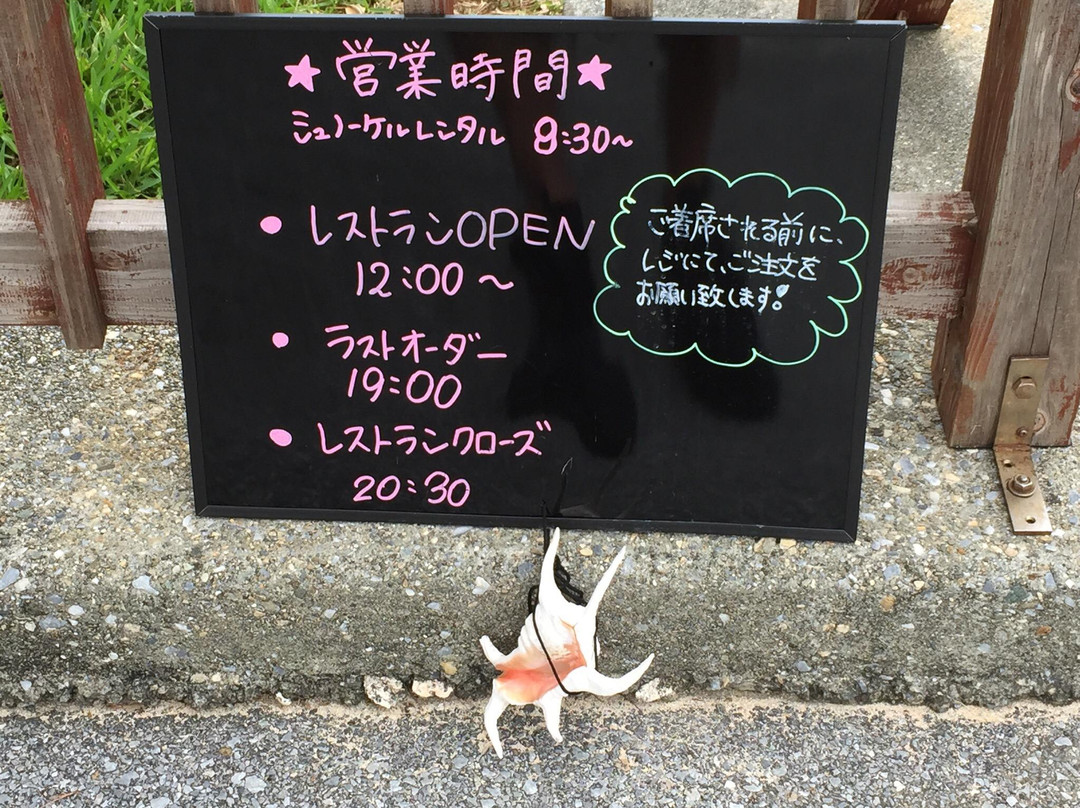 ★営業時間★
シュノーケルレンタル 8:30~
● レストランOPEN
12:00~
● ラストオーダー
19:00
● レストランクローズ
20:30
ご着席される前に、
レジにて、ご注文を
お願い致します!